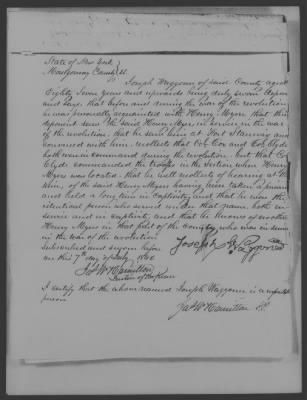 State of New York }
Montgomery County } SS
Joseph Waggoner of said County aged
Eighty Seven years and upwards being duly sworn deposes
and says that before and during the war of the revolution
he was personally acquainted with Henry Myers that this
deponent seen the said Henry Myers in service in the war
of the revolution, that he seen him at Fort Stanwix and
conversed with him, recollects that Col Cox and Col Clyde
both were in command during the revolution, but that Col
Clyde commanded the troops in the section where Henry
Myers was located, that he well recollects of hearing at the
time, of the said Henry Myers having been taken a prisoner
and held a long time in captivity, and that he was the
identical person who served under that name, both in
service and in captivity, and that he knows of no other
Henry Myers in that part of the country who was in service
in the war of the revolution.
Subscribed and sworn before
me this 7th day of July 1840
Joseph Waggoner
Jas W Hamilton
Justice of the Peace
I certify that the above named Joseph Waggoner is a credible
person
Jas W Hamilton J.P.